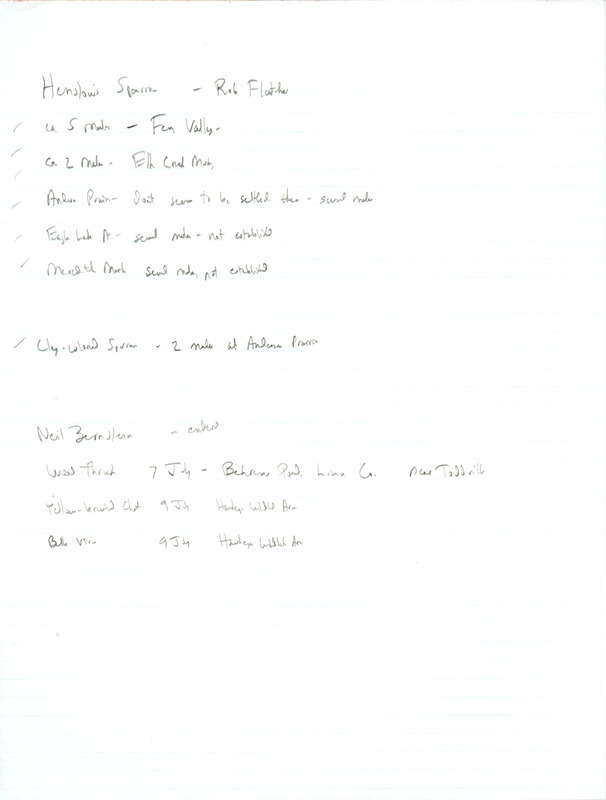 Henslow's Sparrow - Rob Fletcher
ca 5 males - Fen Valley -
ca 2 males - Elk Creek Marsh
Anderson Prairie - Don't seem to be settled there - several males
Eagle Lake A - several males - not established
Meredith Marsh several males, not established
Clay-colored Sparrow - 2 males at Anderson Prairie
Neil Bernstein -
Wood Thrush 7 July - Behrens Pond, Linn Co. near Toddville
Yellow-breasted Chat 9 July Hawkeye Wildlife Area
Bells Vireo 9 July Hawkeye Wildlife Area